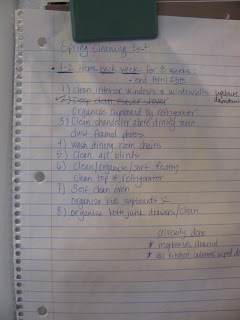 Spring Cleaning List
• 1-2 items each week for 8 weeks
• end
1) clean interior windows & windowsills upstairs downstairs
2) Deep clean shower
organize cupboard by refrigerator
3) Clean chandelier above dining table
dust framed photos
4) wash dining room chairs
5) Clean all blinds
6) Clean/organize/sort Pantry
Clean top of refrigerator
7) Self clean oven
organize kids cupboards
8) organize both junk drawers/clean
already done
* mopboards cleaned
* all kitchen cabinets wiped